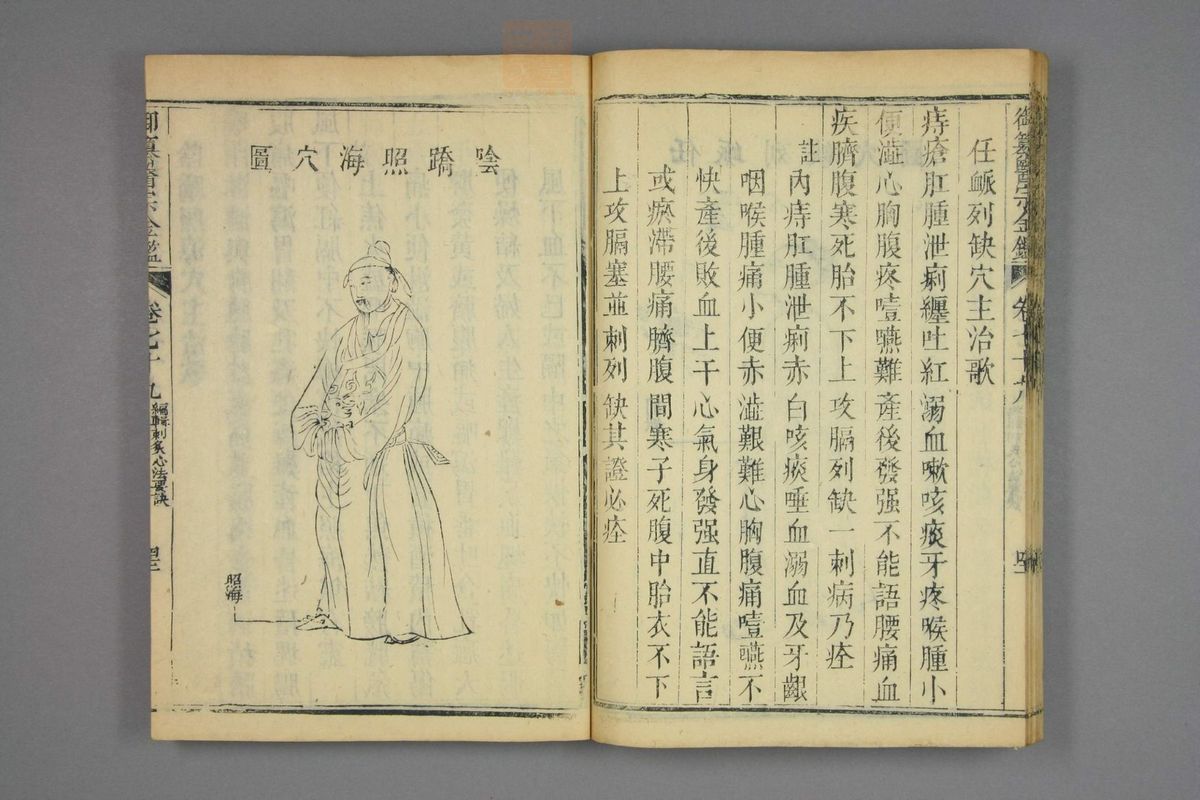 任脈列缺穴主治歌
痔瘡肛腫泄痢纏吐紅溺血嗽咳痰牙疼喉腫小
便澁心胸腹疼噎嚥難產後發强不能語腰痛血
疾臍腹寒死胎不下上攻膈列缺一刺病乃痊
註內痔肛腫泄痢赤白咳痰唾血溺血及牙齦
咽喉腫痛小便赤澁艱難心胸腹痛噎嚥不
快產後敗血上干心氣身發强直不能語言
或瘀滯腰痛臍腹間寒子死腹中胎衣不下
上攻膈塞並刺列缺其證必痊
陰蹻照海穴圖
照海
御纂醫宗金鑑
卷七十九
編輯刺灸心法要訣